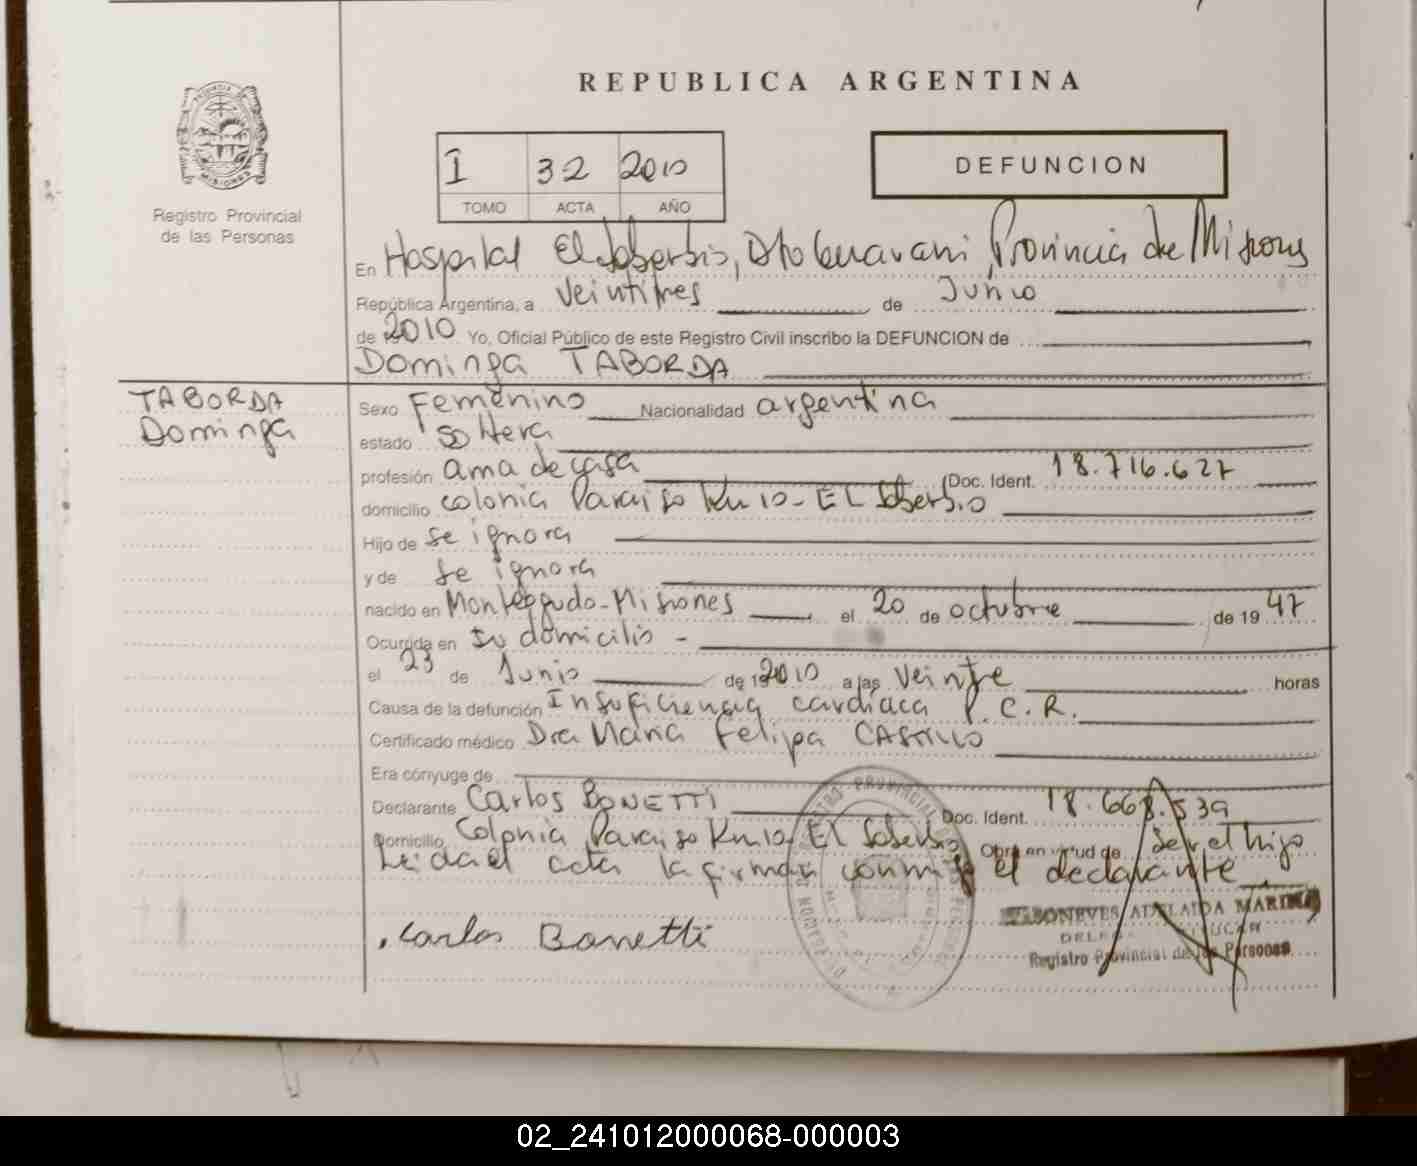 REPUBLICA ARGENTINA
PROVINCIA DE MISIONES
Registro Provincial
de las Personas
I 32 2010
TOMO ACTA AÑO
DEFUNCION
En Hospital El Soberbio, Dto Guarani Provincia de Misiones
República Argentina, a veintitres de Junio
de 2010 Yo, Oficial Público de este Registro Civil inscribo la DEFUNCION de
Dominga TABORDA
TABORDA
Dominga
Sexo Femenino Nacionalidad argentina
estado soltera
profesión ama de casa Doc. Ident. 18.716.627
domicilio colonia Paraiso Km 10 - EL Soberbio
Hijo de se ignora
y de se ignora
nacido en Monteagudo - Misiones el 20 de octubre de 1947
Ocurrida en su domicilio -
el 23 de Junio de 2010 a las veinte horas
Causa de la defunción Insuficiencia cardiaca P.C.R.
Certificado médico Dra Maria Felipa CASTILLO
Era cónyuge de
Declarante Carlos BONETTI Doc. Ident. 18.668.539
Domicilio Colonia Paraiso Km 10 El Soberbio Obra en virtud de ser el hijo
Leida el acta la firman conmigo el declarante
Carlos Bonetti
ADELAIDA MARINA
Registro Provincial de las Personas
02_241012000068-000003